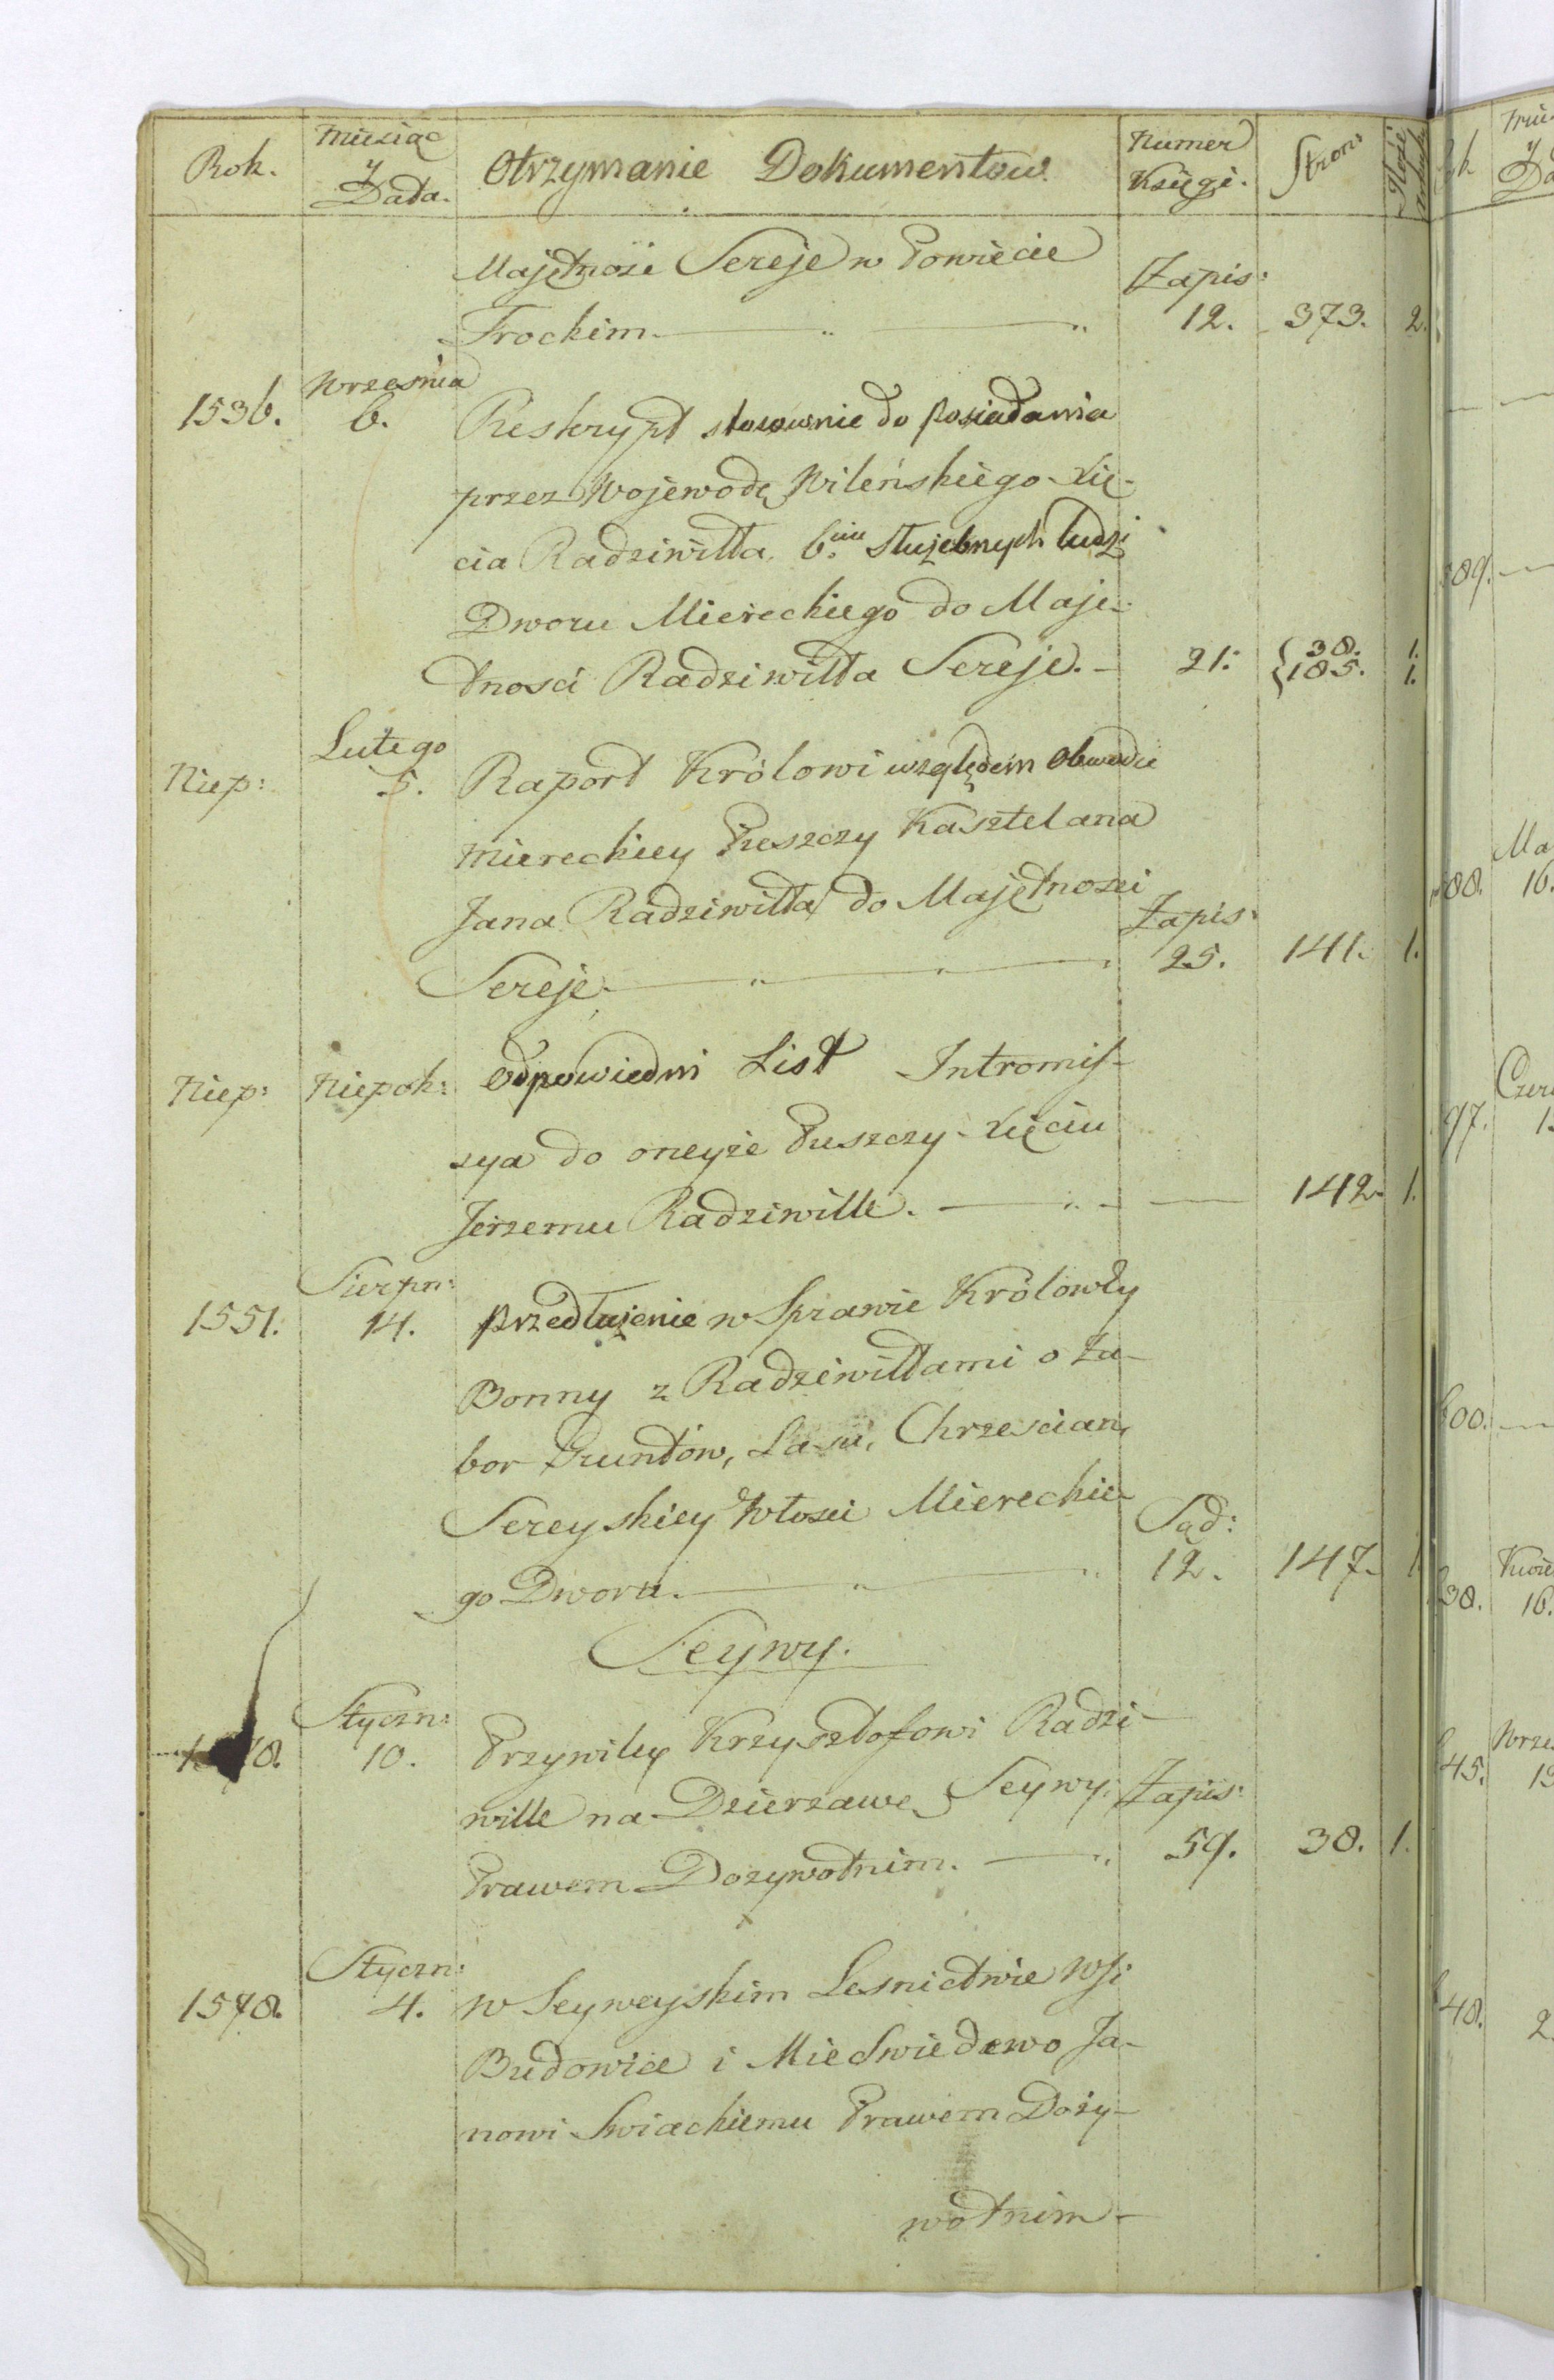 Rok. Miesiąc y Data. Otrzymanie Dokumentow. Numer Księgi. Stron: Ilość
Majętnośc Sereje w Powiecie Zapis:
Trockim. 12. 373. 2.
1536. Wrzesnia 6. Reskrypt stosownie do posiadania
przez Wojewodę Wileńskiego Xię-
cia Radziwiłła 6ciu Służebnych ludzi
Dworu Miereckiego do Maję-
tnosci Radziwiłła Sereje. 21. {38. 1.
{185. 1.
Niep: Lutego 5. Raport Królowi względem
Miereckiey Puszczy Kasztelana
Jana Radziwiłła do Majętnosci Zapis:
Sereje 25. 141. 1.
Niep: Niepok: Odpowiedni List Intromis-
sya do oneyże Puszczy Xięciu
Jerzemu Radziwille. 142. 1.
1551. Sierpn: 14. przedłużenie w Sprawie Królowły
Bonny z Radziwiłłami o Za-
bor Gruntów, Lasu, Chrzescian,
Sereyskiey Włosci Miereckie- Sąd:
go Dworu. 12. 147. 1.
Seywy.
Styczn: 10. Przywiley Krzysztofowi Radzi-
wille na Dzierzawę Seywy: Zapis:
Prawem Dozywotnim. 59. 38. 1.
1578. Styczn: 4. w Seyweyskim Lesnictwie Wsi
Budowice i Miedwiedewo Ja-
nowi Swiackiemu Prawem Doży-
wotnim